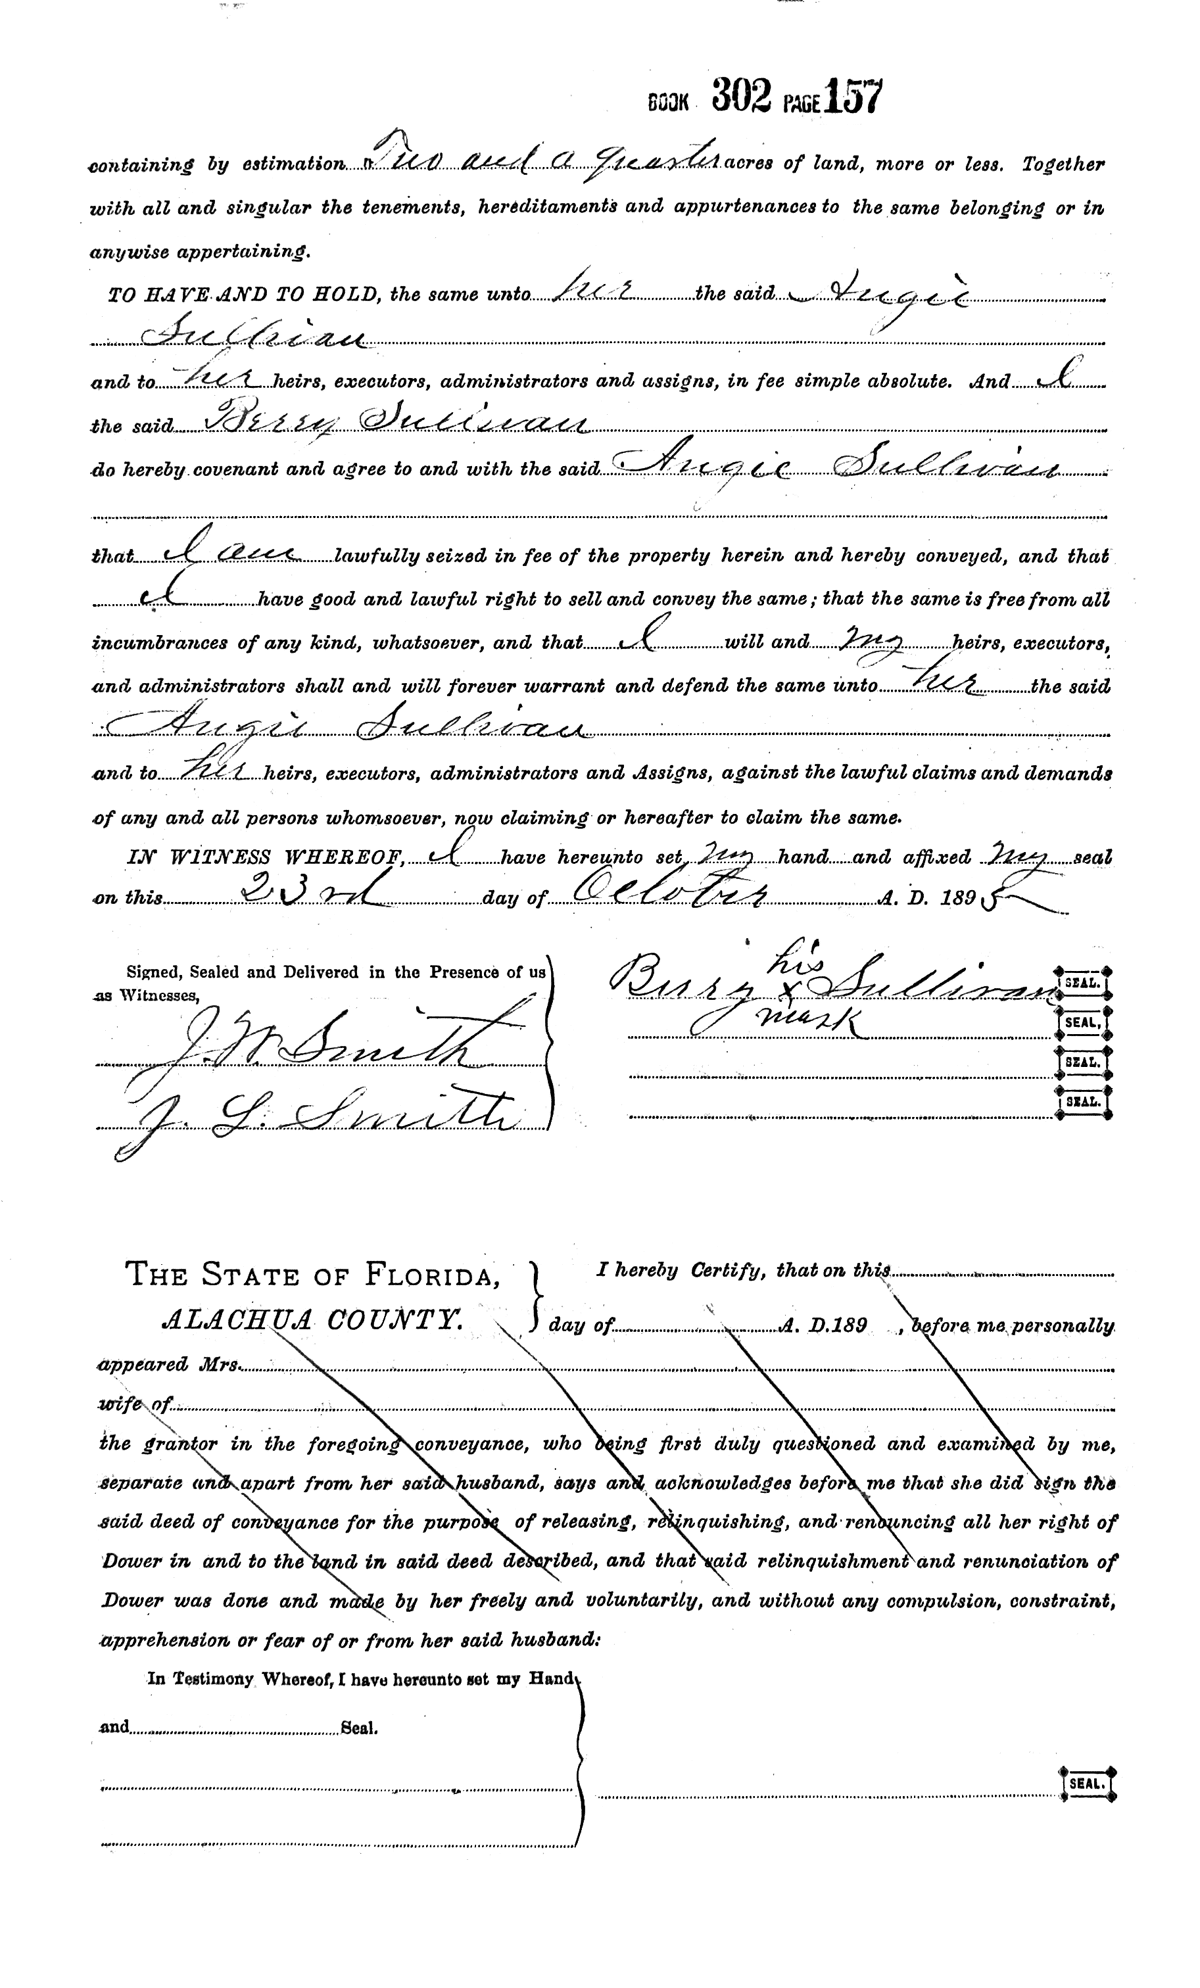 BOOK 302 PAGE 157
containing by estimation Two and a quarter acres of land, more or less. Together
with all and singular the tenements, hereditaments and appurtenances to the same belonging or in
anywise appertaining.
TO HAVE AND TO HOLD, the same unto her the said Angie
Sullivan
and to her heirs, executors, administrators and assigns, in fee simple absolute. And I
the said Berry Sullivan
do hereby covenant and agree to and with the said Angie Sullivan
that I am lawfully seized in fee of the property herein and hereby conveyed, and that
I have good and lawful right to sell and convey the same; that the same is free from all
incumbrances of any kind, whatsoever, and that I will and my heirs, executors,
and administrators shall and will forever warrant and defend the same unto her the said
Angie Sullivan
and to her heirs, executors, administrators and Assigns, against the lawful claims and demands
of any and all persons whomsoever, now claiming or hereafter to claim the same.
IN WITNESS WHEREOF, I have hereunto set my hand and affixed my seal
on this 23rd day of October A. D. 1895
Signed, Sealed and Delivered in the Presence of us
as Witnesses,
J. W. Smith
J. L. Smith
his
Berry x Sullivan SEAL.
mark SEAL.
SEAL.
SEAL.
THE STATE OF FLORIDA,
ALACHUA COUNTY.
I hereby Certify, that on this
day of A. D. 189 , before me personally
appeared Mrs.
wife of
the grantor in the foregoing conveyance, who being first duly questioned and examined by me,
separate and apart from her said husband, says and acknowledges before me that she did sign the
said deed of conveyance for the purpose of releasing, relinquishing, and renouncing all her right of
Dower in and to the land in said deed described, and that said relinquishment and renunciation of
Dower was done and made by her freely and voluntarily, and without any compulsion, constraint,
apprehension or fear of or from her said husband:
In Testimony Whereof, I have hereunto set my Hand
and Seal.
SEAL.